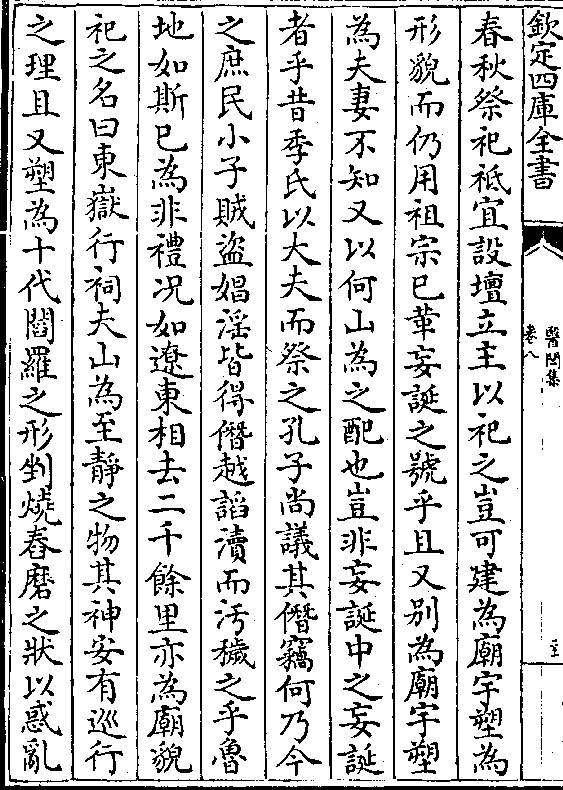 欽定四庫全書
醫閭集
卷八
春秋祭祀祗宜設壇立主以祀之豈可建為廟宇塑為
形貌而仍用祖宗已革妄誕之號乎且又别為廟宇塑
為夫妻不知又以何山為之配也豈非妄誕中之妄誕
者乎昔季氏以大夫而祭之孔子尚議其僭竊何乃今
之庶民小子賊盜娼淫皆得僭越謟瀆而汚穢之乎魯
地如斯已為非禮况如遼東相去二千餘里亦為廟貌
祀之名曰東嶽行祠夫山為至靜之物其神安有巡行
之理且又塑為十代閻羅之形剉燒舂磨之狀以惑亂